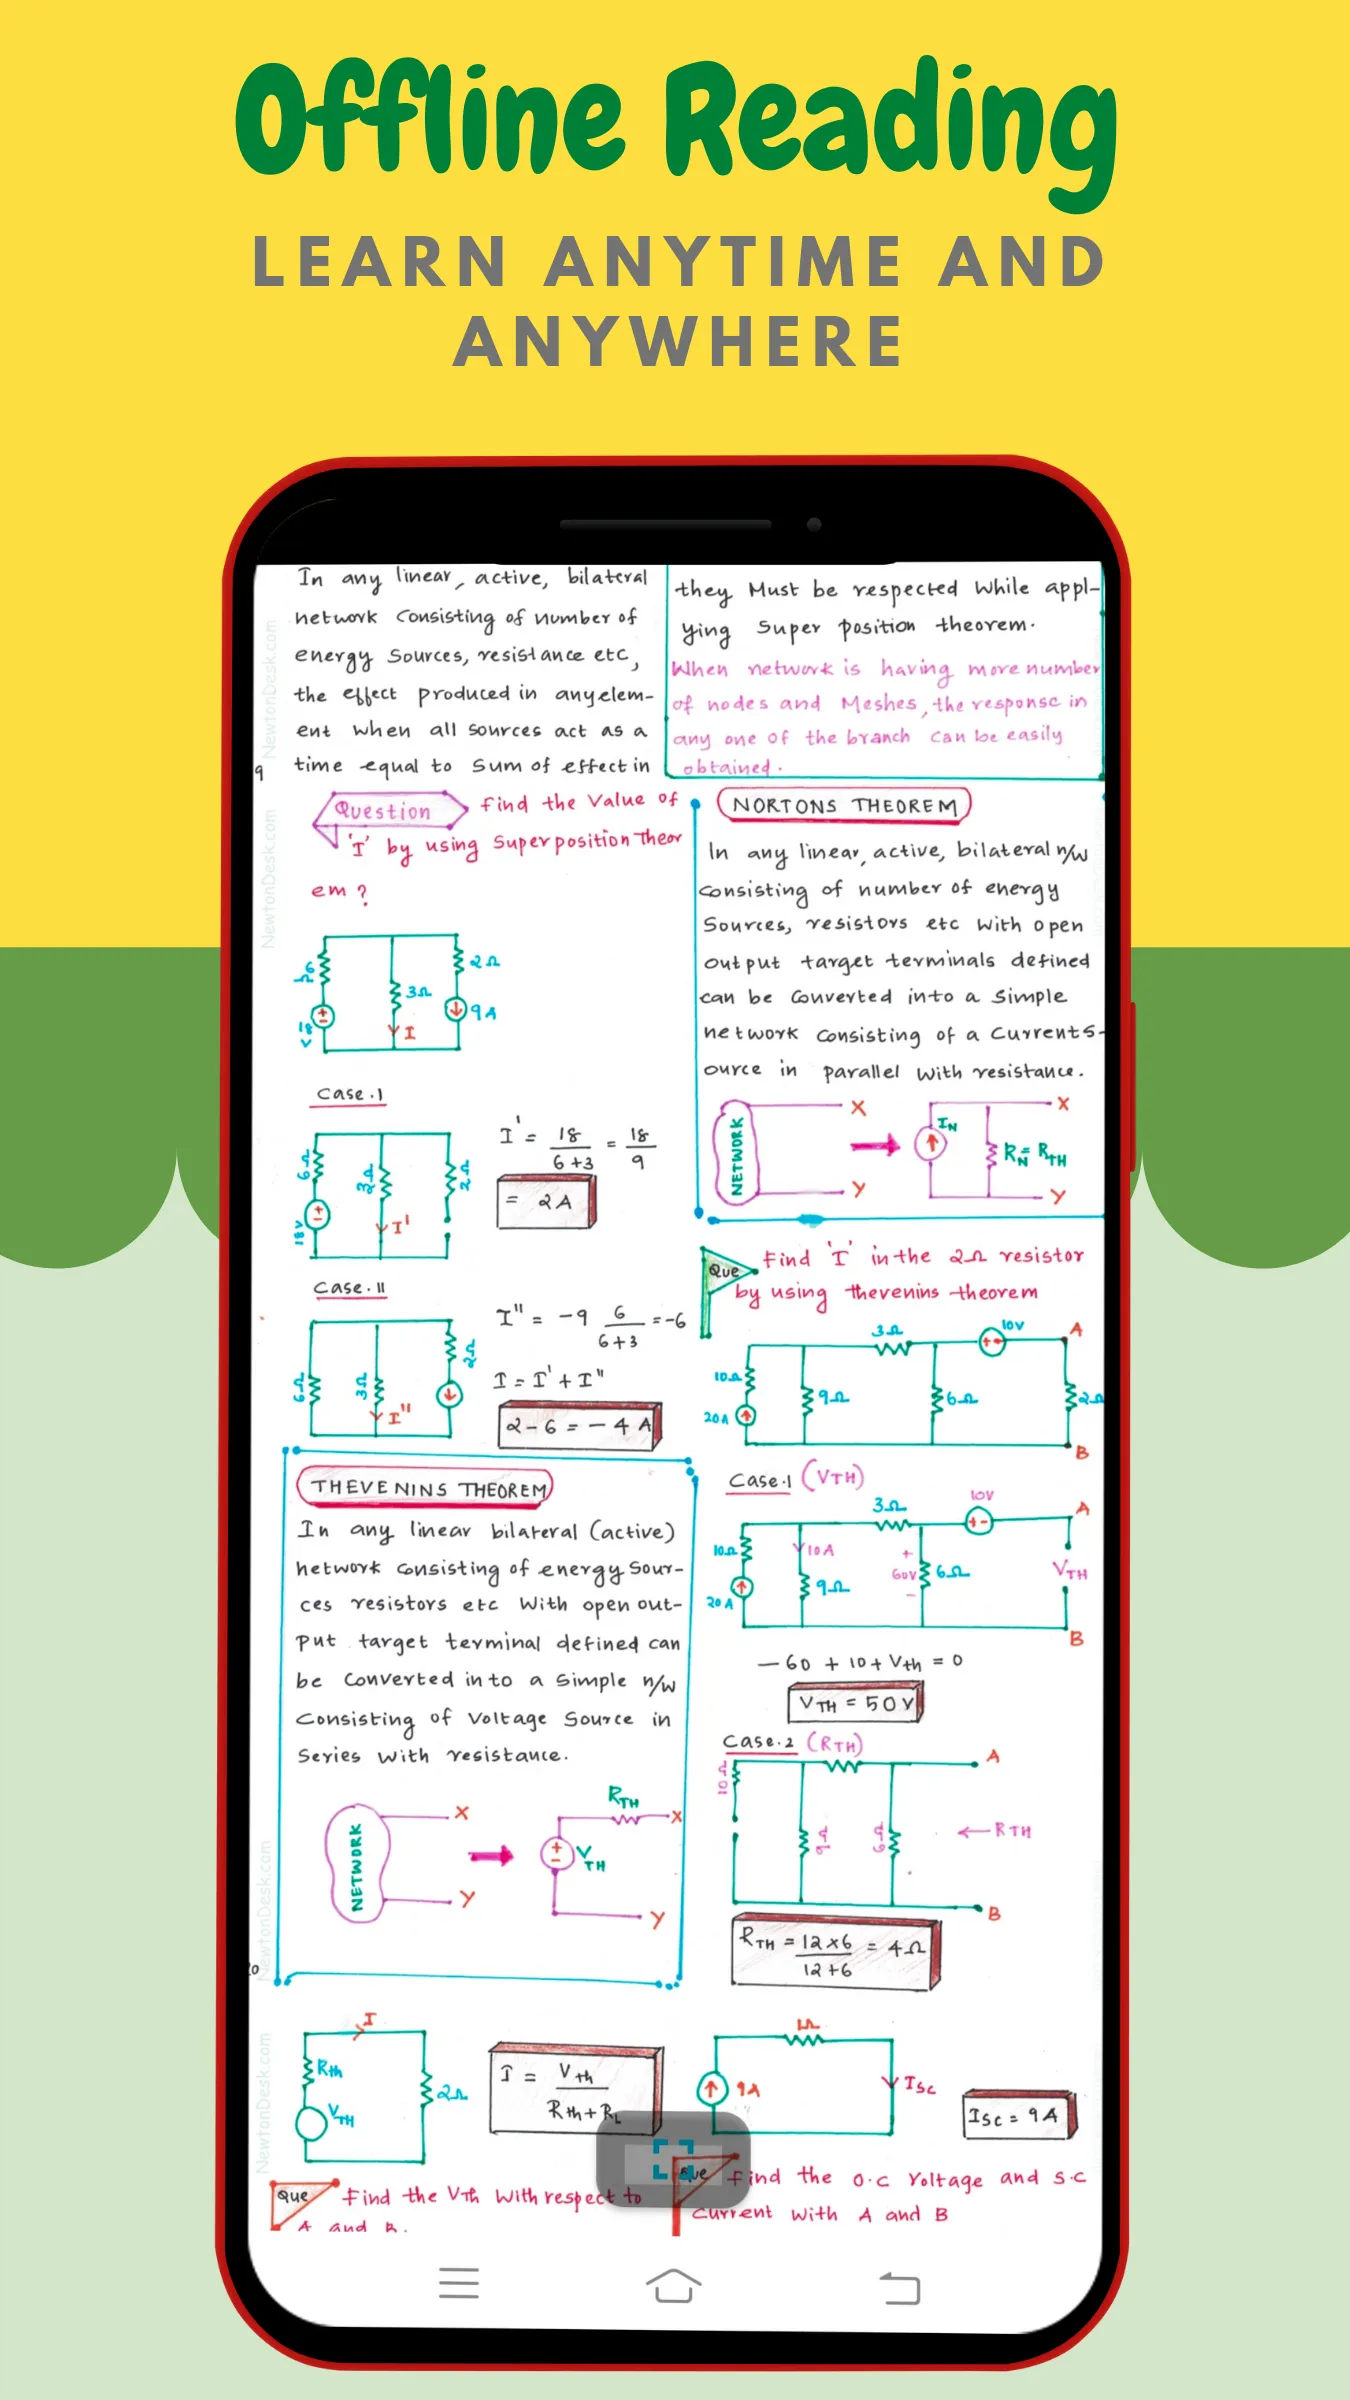 Offline Reading
LEARN ANYTIME AND
ANYWHERE
In any linear, active, bilateral
network consisting of number of
energy sources, resistance etc,
the effect produced in any elem-
ent when all sources act as a
time equal to sum of effect in
they Must be respected while appl-
ying Super position theorem.
When network is having more number
of nodes and Meshes, the response in
any one of the branch can be easily
obtained.
9
NewtonDesk.com
NewtonDesk.com
Question find the Value of
'I' by using Superposition Theor
em ?
2Ω
3Ω
18 V
I
9A
Case.I
6Ω
3Ω
2Ω
18V
I'
I' = 18/6+3 = 18/9
= 2A
Case.II
6Ω
3Ω
2Ω
I''
I'' = -9 6/6+3 = -6
I = I' + I''
2-6 = -4 A
THEVENINS THEOREM
In any linear bilateral (active)
network consisting of energy sour-
ces resistors etc with open out-
put target terminal defined can
be converted into a simple n/w
consisting of voltage source in
series with resistance.
NETWORK
X
Y
RTH
X
VTH
Y
NewtonDesk.com
NORTONS THEOREM
In any linear, active, bilateral n/w
consisting of number of energy
sources, resistors etc with open
output target terminals defined
can be converted into a simple
network consisting of a currents-
ource in parallel with resistance.
NETWORK
X
Y
IN
RN = RTH
X
Y
Que Find 'I' in the 2Ω resistor
by using thevenins theorem
3Ω
10V
A
10Ω
9Ω
6Ω
2Ω
20A
B
Case.1 (VTH)
3Ω
10V
A
10Ω
10A
+
60V
-
6Ω
VTH
9Ω
20A
B
-60 + 10 + Vth = 0
VTH = 50V
Case.2 (RTH)
10Ω
A
9
6Ω
← RTH
B
RTH = 12×6/12+6 = 4Ω
NewtonDesk.com
I
Rth
VTH
2Ω
I = Vth/Rth+RL
1Ω
9A
ISC
ISC = 9A
Que find the Vth with respect to
A and B.
Que find the O.C Voltage and S.C
current with A and B